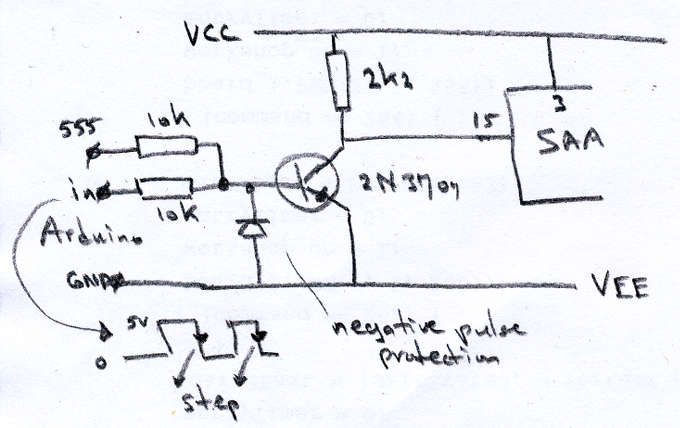 VCC
2k2
3
15
SAA
10k
555
in
10k
2N3704
Arduino
GND
VEE
5V
0
negative pulse
protection
step